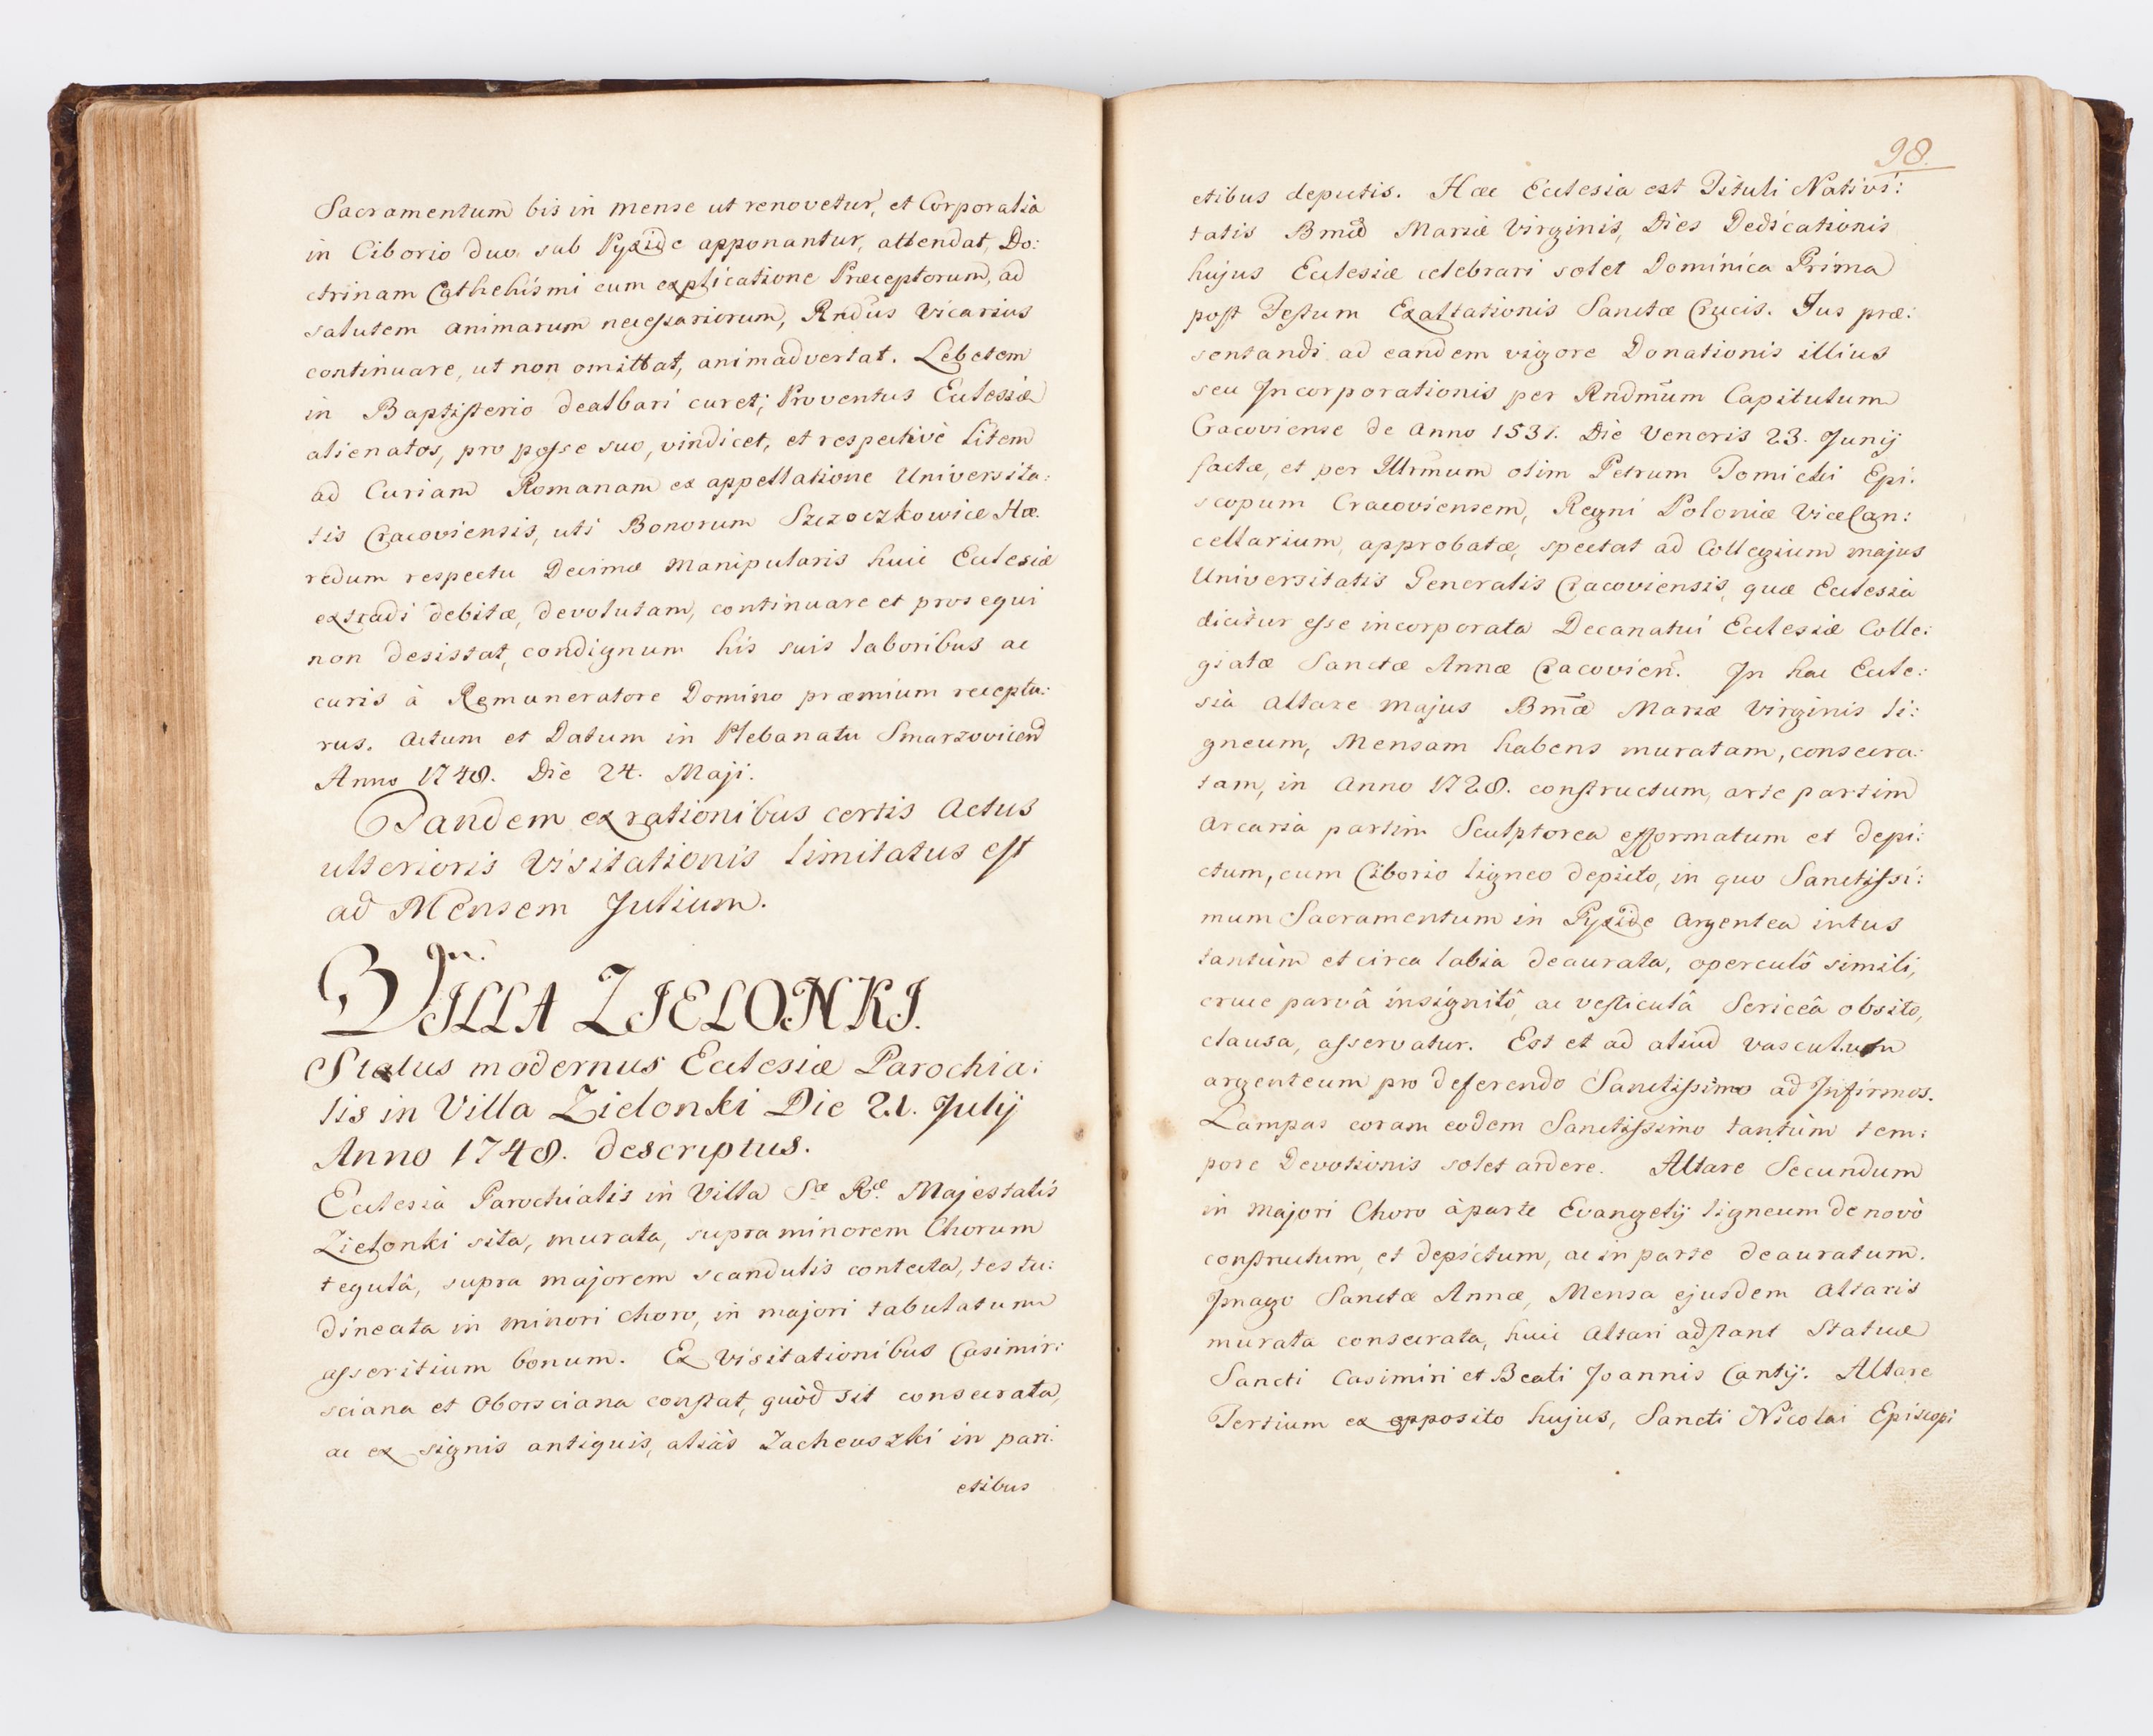 Sacramentum bis in mense ut renovetur, et Corporalia
in Ciborio duo sub Pyxide apponantur, attendat, Do:
ctrinam Cathehismi cum explicatione Præceptorum, ad
salutem animarum necessariorum, Rndus Vicarius
continuare, ut non omittat, animadvertat. Lebetem
in Baptisterio dealbari curet; Proventus Ecclesiæ
alienatos, pro posse suo, vindicet, et respectivè litem
ad Curiam Romanam ex appellatione Universita:
tis Cracoviensis, uti Bonorum Szczoczkowice Hæ:
redum respectu Decimæ Manipularis huic Ecclesiæ
extradi debitæ, devolutam, continuare et prosequi
non desistat, condignum his suis laboribus ac
curis à Remuneratore Domino præmium receptu:
rus. Actum et Datum in Plebanatu Smarzovicen
Anno 1748. Die 24. Maji.
Tandem ex rationibus certis Actus
ulterioris Visitationis limitatus est
ad Mensem Julium.
VILLA ZIELONKI.
Status modernus Ecclesiæ Parochia:
lis in Villa Zielonki Die 21. Julij
Anno 1748. descriptus.
Ecclesia Parochialis in Villa Sæ Ræ Majestatis
Zielonki sita, murata, supra minorem Chorum
tegulâ, supra majorem scandulis contecta, testu:
dineata in minori choro, in majori tabulatum
asseritium bonum. Ex Visitationibus Casimir:
sciana et Oborsciana constat, quòd sit consecrata,
ac ex signis antiquis, aliàs Zacheuszki in pari:
etibus
98.
etibus depictis. Hæc Ecclesia est Tituli Nativi:
tatis Bmæ Mariæ Virginis, Dies Dedicationis
hujus Ecclesiæ celebrari solet Dominica Prima
post Festum Exaltationis Sanctæ Crucis. Jus præ:
sentandi ad eandem vigore Donationis illius
seu Incorporationis per Rndmum Capitulum
Cracoviense de Anno 1531. Die Veneris 23. Junij
factæ, et per Illrmum olim Petrum Tomicki Epi:
scopum Cracoviensem, Regni Poloniæ ViceCan:
cellarium, approbatæ, spectat ad Collegium majus
Universitatis Generalis Cracoviensis, quæ Ecclesia
dicitur esse incorporata Decanatui Ecclesiæ Colle:
giatæ Sanctæ Annæ Cracovien. In hac Eccle:
sia Altare majus Bmæ Mariæ Virginis li:
gneum, Mensam habens muratam, consecra:
tam, in Anno 1728. constructum, arte partim
Arcaria partim Sculptorea efformatum et depi:
ctum, cum Ciborio ligneo depicto, in quo Sanctissi:
mum Sacramentum in Pyxide Argentea intus
tantùm et circa labia deaurata, operculô simili,
cruce parvâ insignitô, ac vesticulâ Sericeâ obsito,
clausa, asservatur. Est et ad aliud vasculum
argenteum pro deferendo Sanctissimo ad Infirmos.
Lampas coram eodem Sanctissimo tantùm tem:
pore Devotionis solet ardere. Altare Secundum
in Majori Choro àparte Evangelij ligneum denovò
constructum, et depictum, ac in parte deauratum.
Imago Sanctæ Annæ, Mensa ejusdem Altaris
murata consecrata, huic Altari adstant Statuæ
Sancti Casimiri et Beati Joannis Cantij: Altare
Tertium ex opposito hujus, Sancti Nicolai Episcopi